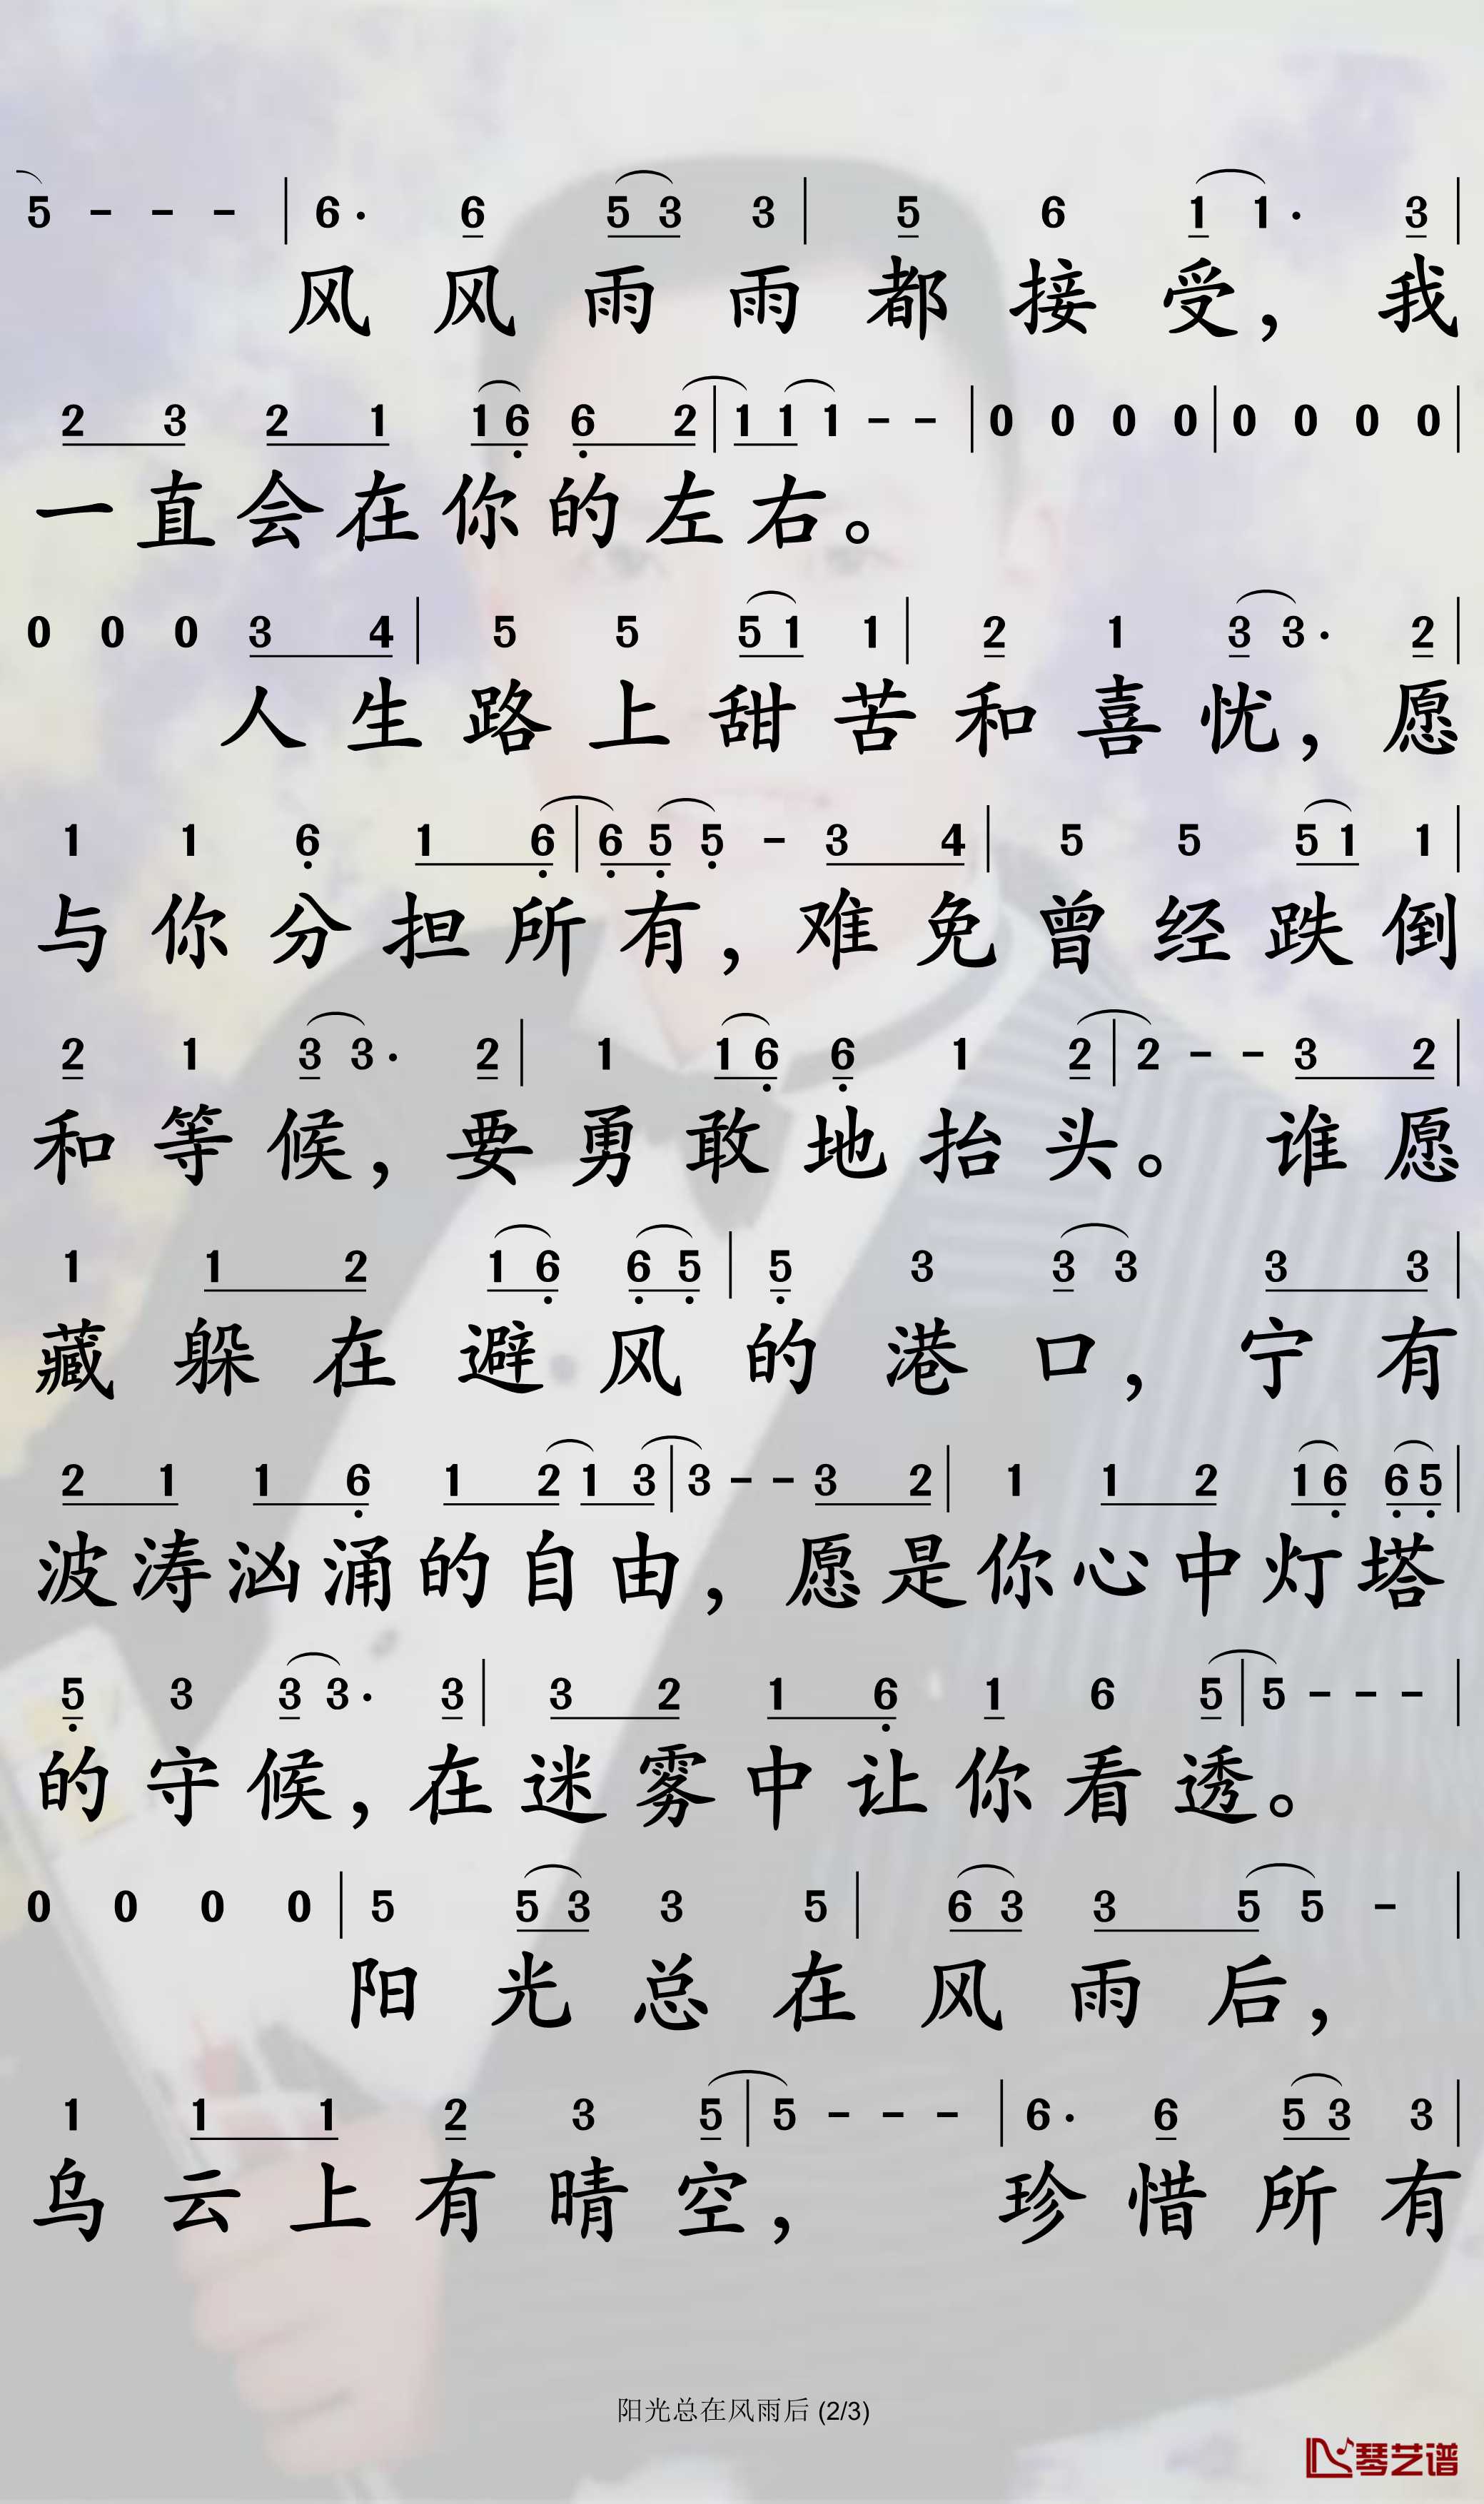 5 - - - | 6· 6 5 3 3 | 5 6 1 1· 3 |
风 风 雨 雨 都 接 受， 我
2 3 2 1 1 6 6 2 | 1 1 1 - - | 0 0 0 0 | 0 0 0 0 |
一 直 会 在 你 的 左 右。
0 0 0 3 4 | 5 5 5 1 1 | 2 1 3 3· 2 |
人 生 路 上 甜 苦 和 喜 忧， 愿
1 1 6 1 6 | 6 5 5 - 3 4 | 5 5 5 1 1 |
与 你 分 担 所 有， 难 免 曾 经 跌 倒
2 1 3 3· 2 | 1 1 6 6 1 2 | 2 - - 3 2 |
和 等 候， 要 勇 敢 地 抬 头。 谁 愿
1 1 2 1 6 6 5 | 5 3 3 3 3 3 |
藏 躲 在 避 风 的 港 口， 宁 有
2 1 1 6 1 2 1 3 | 3 - - 3 2 | 1 1 2 1 6 6 5 |
波 涛 汹 涌 的 自 由， 愿 是 你 心 中 灯 塔
5 3 3 3· 3 | 3 2 1 6 1 6 5 | 5 - - - |
的 守 候， 在 迷 雾 中 让 你 看 透。
0 0 0 0 | 5 5 3 3 5 | 6 3 3 5 5 - |
阳 光 总 在 风 雨 后，
1 1 1 2 3 5 | 5 - - - | 6· 6 5 3 3 |
乌 云 上 有 晴 空， 珍 惜 所 有
阳光总在风雨后 (2/3)
琴艺谱